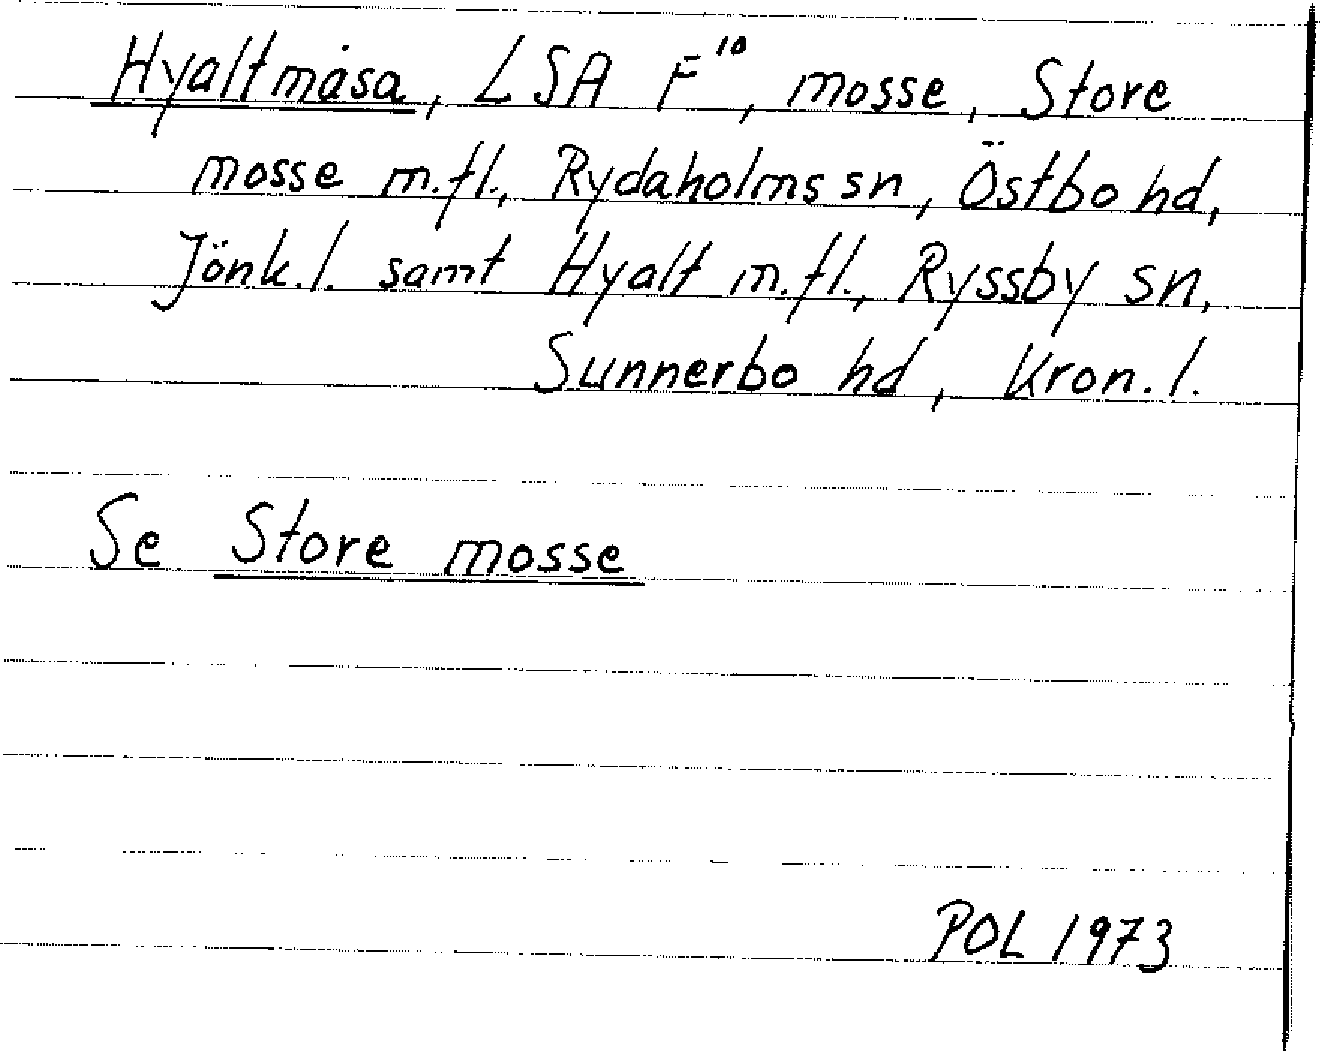 Hyaltmåsa, LSA F¹⁰, mosse, Store
mosse m.fl., Rydaholms sn, Östbo hd,
Jönk. l. samt Hyalt m.fl., Ryssby sn,
Sunnerbo hd, Kron. l.
Se Store mosse
POL 1973